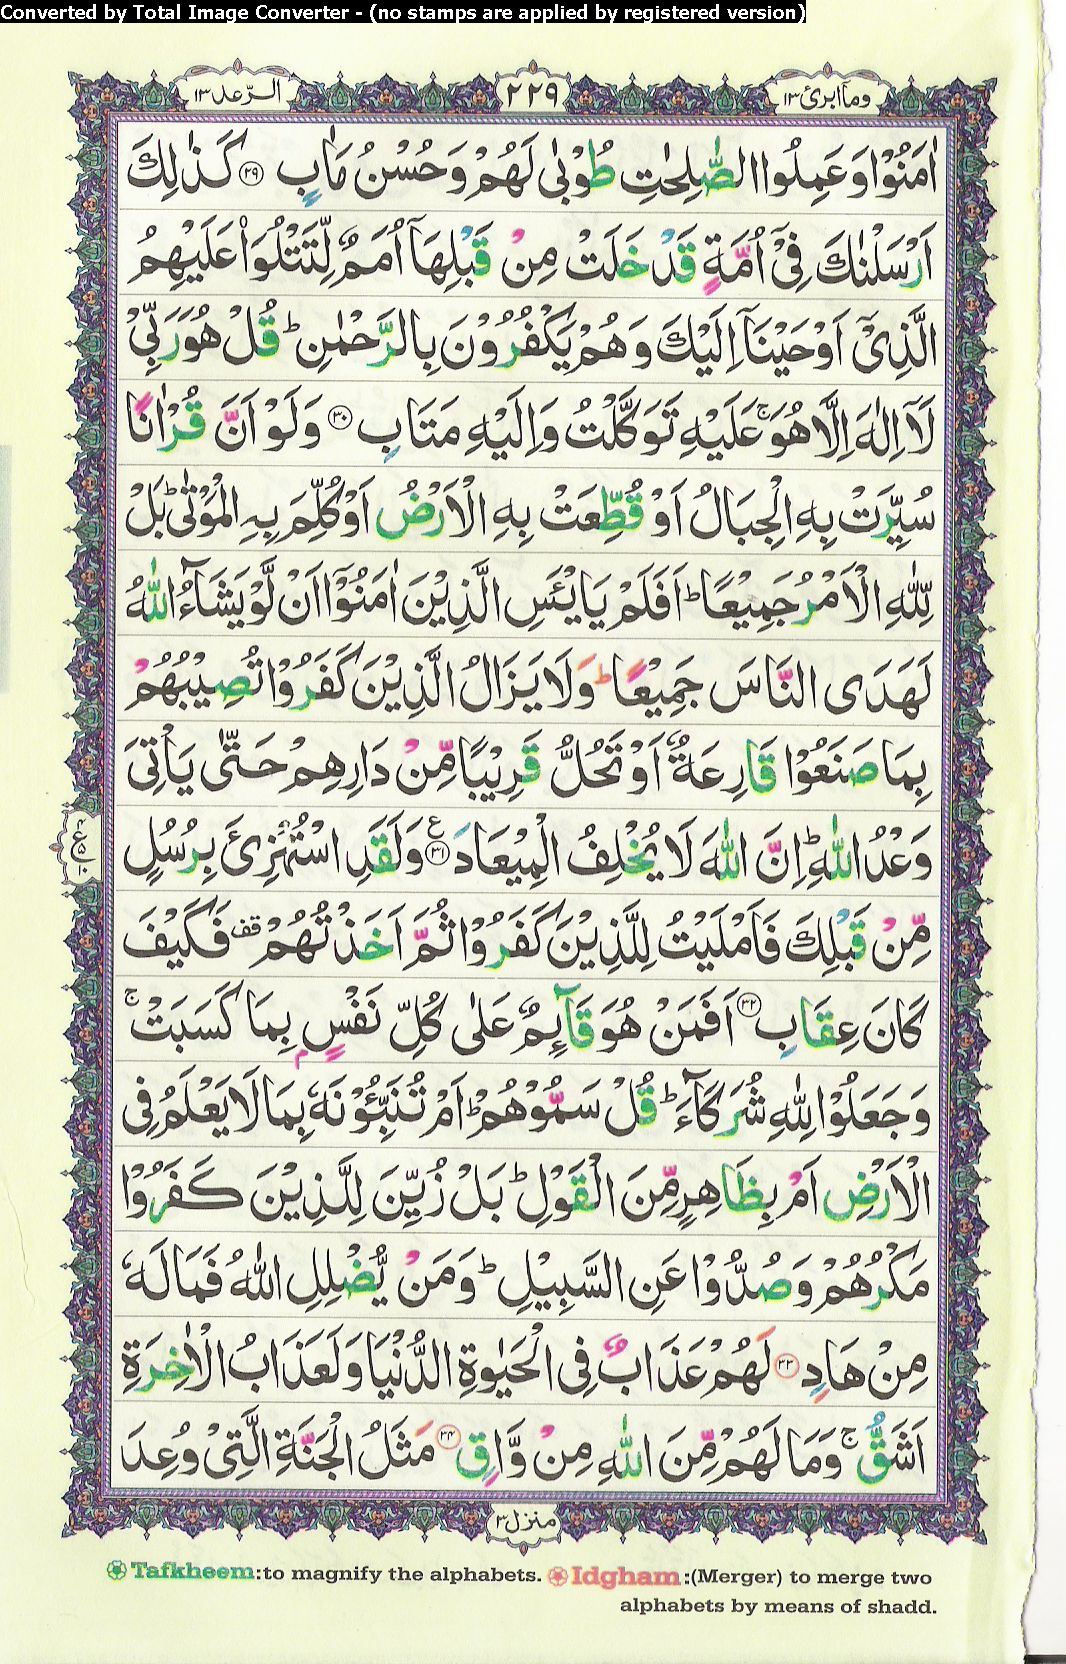 Converted by Total Image Converter - (no stamps are applied by registered version)
وماۤ ابرئ ١٣
٢٢٩
الرّعد ١٣
اٰمَنُوْا وَعَمِلُوا الصّٰلِحٰتِ طُوْبٰى لَهُمْ وَحُسْنُ مَاٰبٍ ٢٩ كَذٰلِكَ
اَرْسَلْنٰكَ فِىْۤ اُمَّةٍ قَدْ خَلَتْ مِنْ قَبْلِهَاۤ اُمَمٌ لِّتَتْلُوَا۟ عَلَيْهِمُ
الَّذِىْۤ اَوْحَيْنَاۤ اِلَيْكَ وَهُمْ يَكْفُرُوْنَ بِالرَّحْمٰنِ ؕ قُلْ هُوَ رَبِّىْ
لَاۤ اِلٰهَ اِلَّا هُوَ ۚ عَلَيْهِ تَوَكَّلْتُ وَاِلَيْهِ مَتَابِ ٣٠ وَلَوْ اَنَّ قُرْاٰنًا
سُيِّرَتْ بِهِ الْجِبَالُ اَوْ قُطِّعَتْ بِهِ الْاَرْضُ اَوْ كُلِّمَ بِهِ الْمَوْتٰى ؕ بَلْ
لِّلّٰهِ الْاَمْرُ جَمِيْعًا ؕ اَفَلَمْ يَايْـَٔسِ الَّذِيْنَ اٰمَنُوْۤا اَنْ لَّوْ يَشَآءُ اللّٰهُ
لَهَدَى النَّاسَ جَمِيْعًا ؕ وَلَا يَزَالُ الَّذِيْنَ كَفَرُوْا تُصِيْبُهُمْ
بِمَا صَنَعُوْا قَارِعَةٌ اَوْ تَحُلُّ قَرِيْبًا مِّنْ دَارِهِمْ حَتّٰى يَاْتِىَ
وَعْدُ اللّٰهِ ؕ اِنَّ اللّٰهَ لَا يُخْلِفُ الْمِيْعَادَ ٣١ ع وَلَقَدِ اسْتُهْزِئَ بِرُسُلٍ
مِّنْ قَبْلِكَ فَاَمْلَيْتُ لِلَّذِيْنَ كَفَرُوْا ثُمَّ اَخَذْتُهُمْ قف فَكَيْفَ
كَانَ عِقَابِ ٣٢ اَفَمَنْ هُوَ قَآئِمٌ عَلٰى كُلِّ نَفْسٍۭ بِمَا كَسَبَتْ ۚ
وَجَعَلُوْا لِلّٰهِ شُرَكَآءَ ؕ قُلْ سَمُّوْهُمْ ؕ اَمْ تُنَبِّـُٔوْنَهٗ بِمَا لَا يَعْلَمُ فِى
الْاَرْضِ اَمْ بِظَاهِرٍ مِّنَ الْقَوْلِ ؕ بَلْ زُيِّنَ لِلَّذِيْنَ كَفَرُوْا
مَكْرُهُمْ وَصُدُّوْا عَنِ السَّبِيْلِ ؕ وَمَنْ يُّضْلِلِ اللّٰهُ فَمَا لَهٗ
مِنْ هَادٍ ٣٣ لَهُمْ عَذَابٌ فِى الْحَيٰوةِ الدُّنْيَا وَلَعَذَابُ الْاٰخِرَةِ
اَشَقُّ ۚ وَمَا لَهُمْ مِّنَ اللّٰهِ مِنْ وَّاقٍ ٣٤ مَثَلُ الْجَنَّةِ الَّتِىْ وُعِدَ
٤
ع
٥
١٠
منزل ٣
Tafkheem:to magnify the alphabets. Idgham:(Merger) to merge two
alphabets by means of shadd.